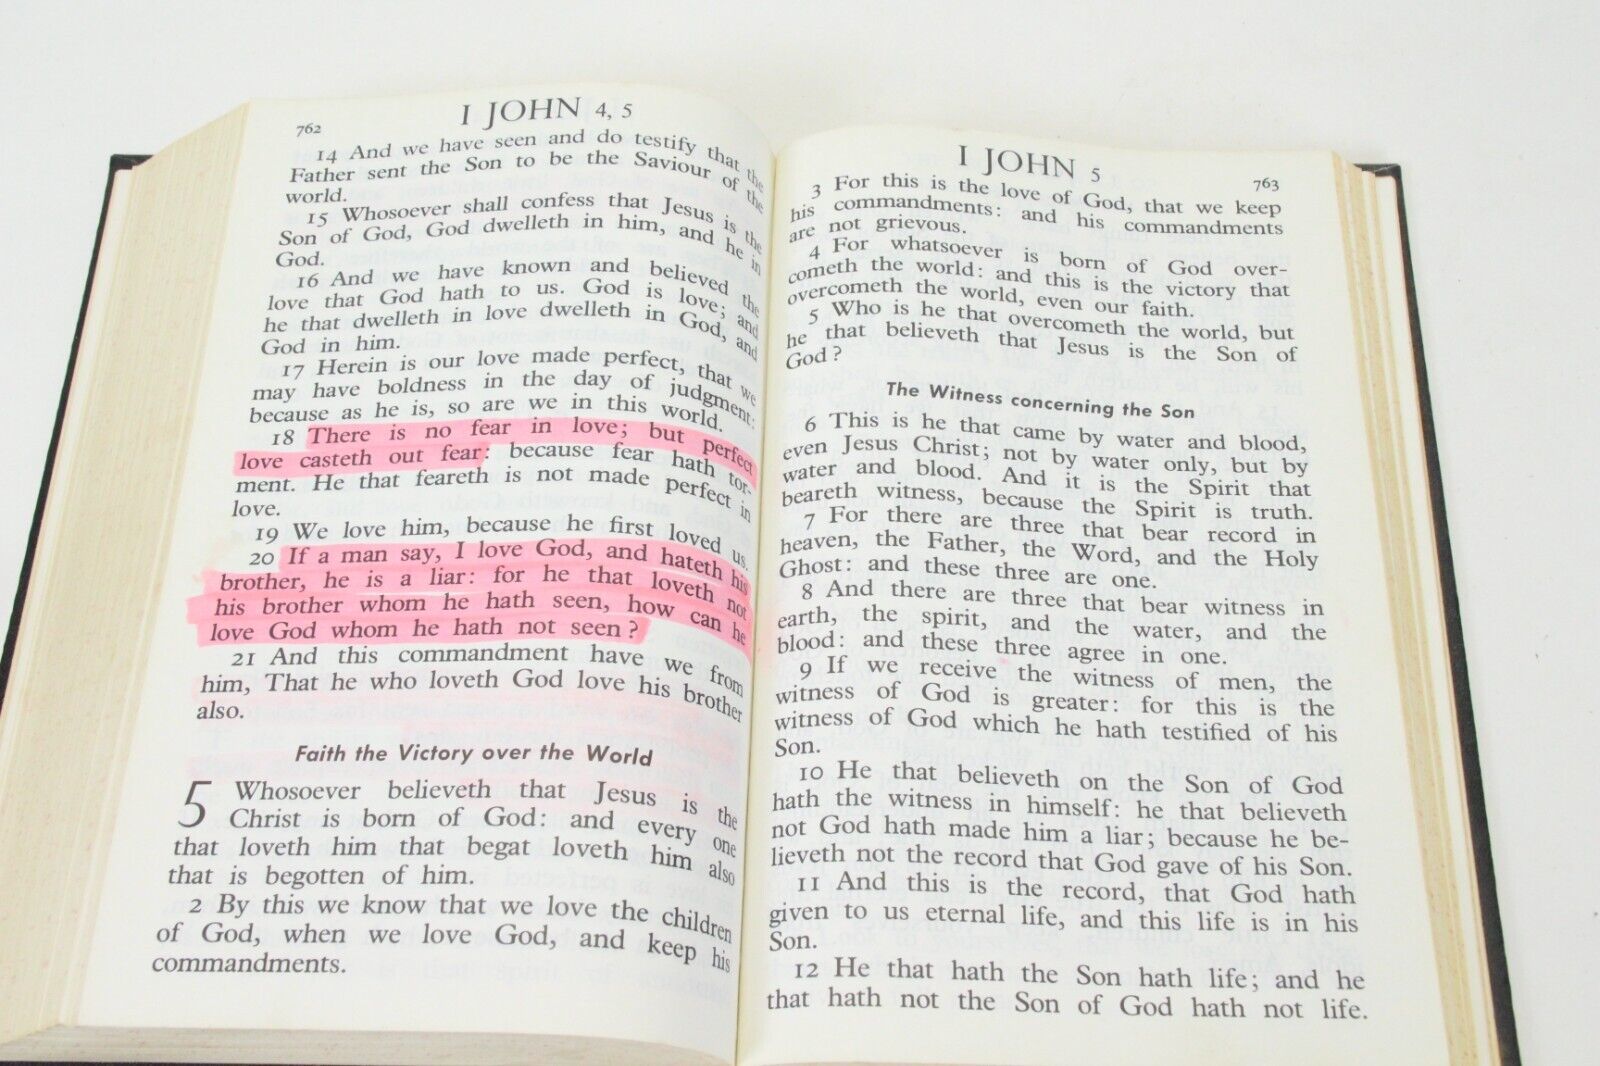 762
I JOHN 4, 5
14 And we have seen and do testify that the
Father sent the Son to be the Saviour of the
world.
15 Whosoever shall confess that Jesus is the
Son of God, God dwelleth in him, and he in
God.
16 And we have known and believed the
love that God hath to us. God is love; and
he that dwelleth in love dwelleth in God, and
God in him.
17 Herein is our love made perfect, that we
may have boldness in the day of judgment:
because as he is, so are we in this world.
18 There is no fear in love; but perfect
love casteth out fear: because fear hath tor-
ment. He that feareth is not made perfect in
love.
19 We love him, because he first loved us.
20 If a man say, I love God, and hateth his
brother, he is a liar: for he that loveth not
his brother whom he hath seen, how can he
love God whom he hath not seen?
21 And this commandment have we from
him, That he who loveth God love his brother
also.
Faith the Victory over the World
5 Whosoever believeth that Jesus is the
Christ is born of God: and every one
that loveth him that begat loveth him also
that is begotten of him.
2 By this we know that we love the children
of God, when we love God, and keep his
commandments.
I JOHN 5
763
3 For this is the love of God, that we keep
his commandments: and his commandments
are not grievous.
4 For whatsoever is born of God over-
cometh the world: and this is the victory that
overcometh the world, even our faith.
5 Who is he that overcometh the world, but
he that believeth that Jesus is the Son of
God?
The Witness concerning the Son
6 This is he that came by water and blood,
even Jesus Christ; not by water only, but by
water and blood. And it is the Spirit that
beareth witness, because the Spirit is truth.
7 For there are three that bear record in
heaven, the Father, the Word, and the Holy
Ghost: and these three are one.
8 And there are three that bear witness in
earth, the spirit, and the water, and the
blood: and these three agree in one.
9 If we receive the witness of men, the
witness of God is greater: for this is the
witness of God which he hath testified of his
Son.
10 He that believeth on the Son of God
hath the witness in himself: he that believeth
not God hath made him a liar; because he be-
lieveth not the record that God gave of his Son.
11 And this is the record, that God hath
given to us eternal life, and this life is in his
Son.
12 He that hath the Son hath life; and he
that hath not the Son of God hath not life.